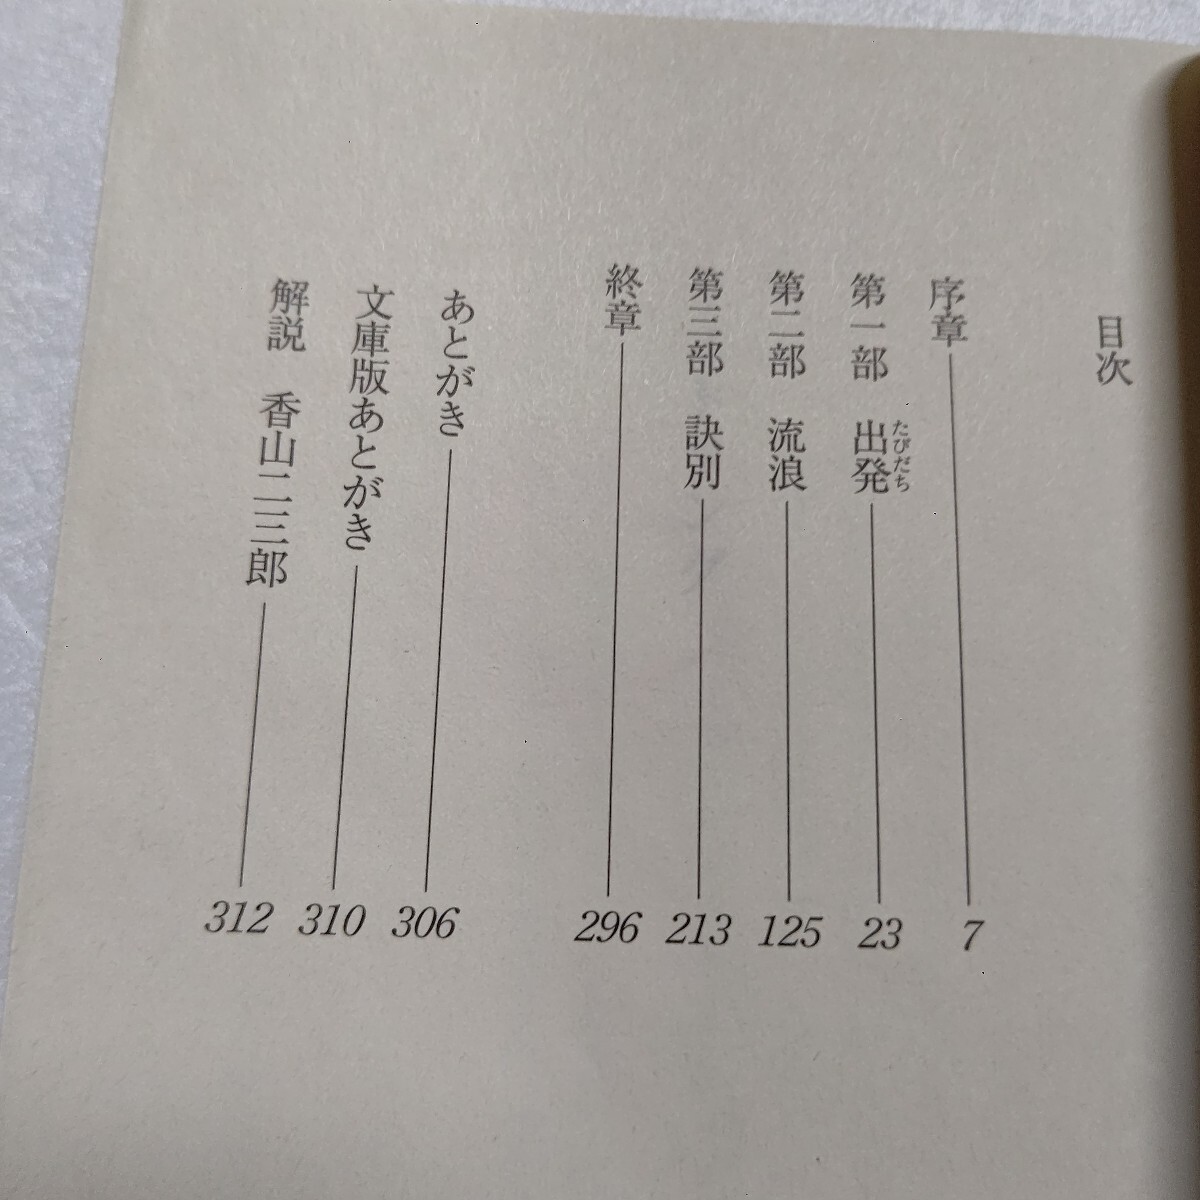 目次
序章 7
第一部 出発 たびだち 23
第二部 流浪 125
第三部 訣別 213
終章 296
あとがき 306
文庫版あとがき 310
解説 香山二三郎 312